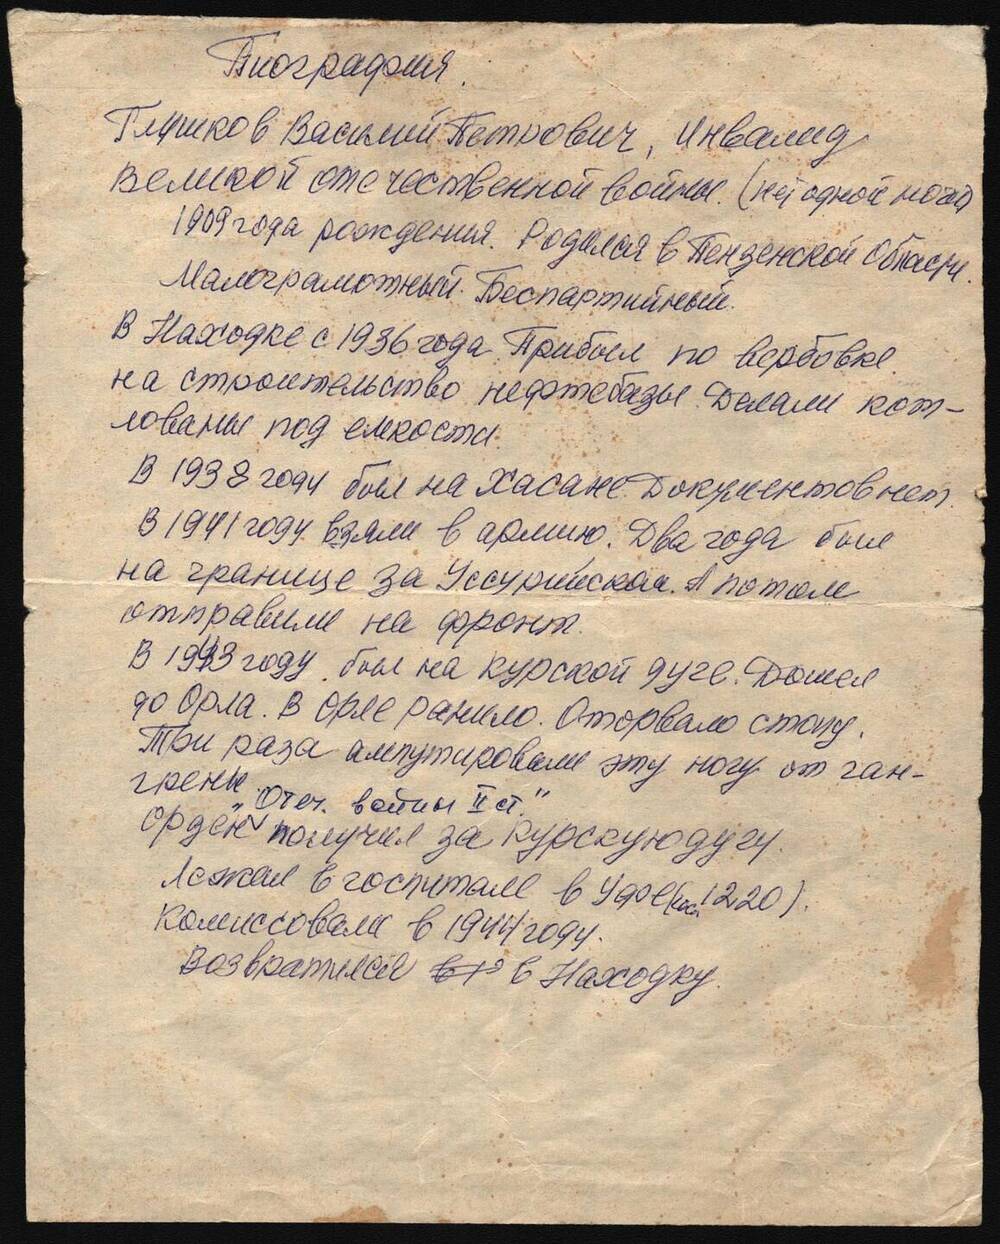 Биография.
Глушков Василий Петрович, Инвалид
Великой отечественной войны. (нет одной ноги)
1909 года рождения. Родился в Пензенской области.
Малограмотный. Беспартийный.
В Находке с 1936 года. Прибыл по вербовке
на строительство нефтебазы. Делали кот-
лованы под емкости.
В 1938 году был на Хасане. Документов нет.
В 1941 году взяли в армию. Два года был
на границе за Уссурийском. А потом
отправили на фронт.
В 1943 году был на курской дуге. Дошел
до Орла. В Орле ранило. Оторвало стопу.
Три раза ампутировали эту ногу от ган-
грены.
"Отеч. войны II ст."
Орден получил за курскую дугу.
Лежал в госпитале в Уфе (1220).
Комиссовали в 1944 году.
Возвратился в Находку.